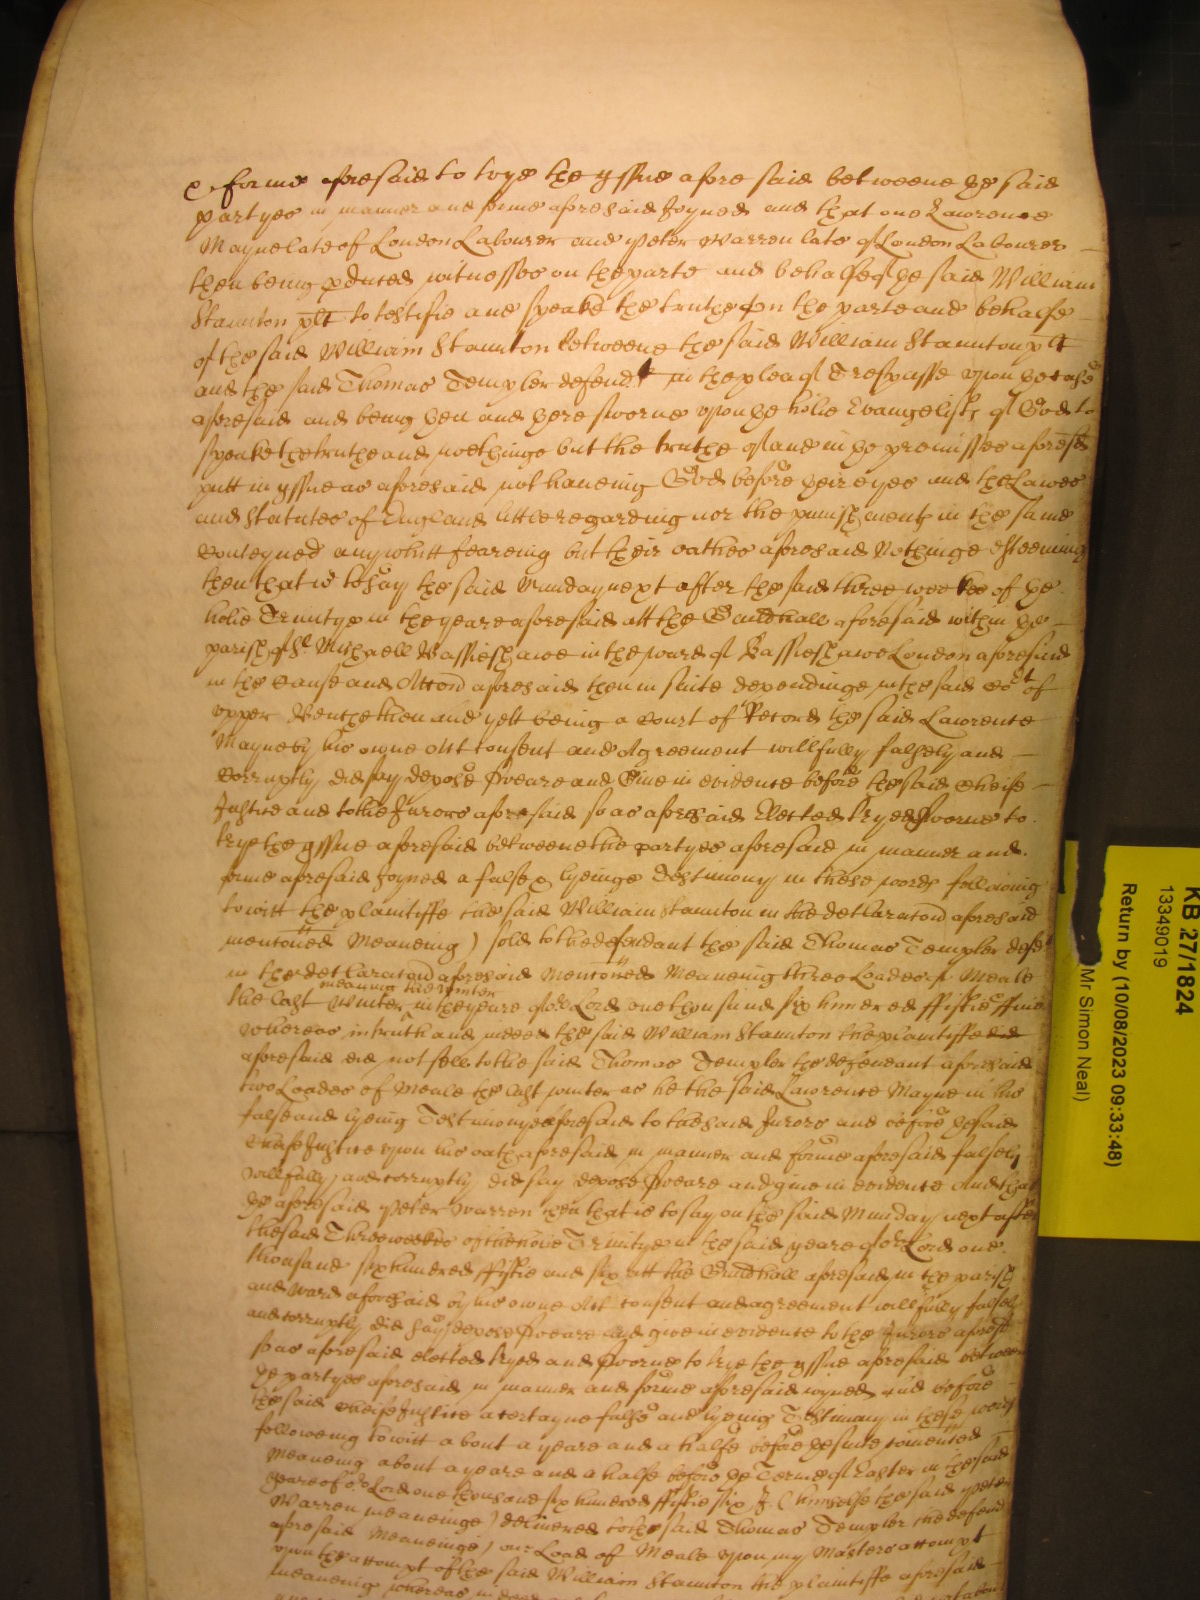 & forme aforesaid to trye the yssue afore said betweene ye said
partyes in manner and forme aforesaid Joyned and that one Lawrence
Mayne late of London Labourer and Peter Warren late of London Labourer
then being pduced witnesses on the parte and behalfe of ye said William
Staunton plt to testifie and speake the truthe on the parte and behalfe
of the said William Staunton betweene the said William Staunton plt
and the said Thomas Templer defendt in the plea of Trespasse upon ye case
aforesaid and being then and there sworne upon ye holie Evangelists of God to
speake the truthe and nothinge but the truthe of and in ye premisses aforesd
putt in yssue as aforesaid not haveing God before their eyes and the Lawes
and Statutes of England little regarding nor the punishments in the same
Conteyned any whitt feareing but their oathes aforesaid Nothinge esteeming
then that is to say the said Munday next after the said three weekes of ye
holie Trinitye in the yeare aforesaid att the Guildhall aforesaid within ye
parish of St Michaell Bassieshawe in the ward of Bassieshawe London aforesaid
in the Cause and Accon aforesaid then in suite dependinge in the said Cot of
upper Benche then and yett being a Court of Record the said Lawrence
Mayne by his owne Act consent and Agreement willfully falsely and
Corruptly did say depose sweare and Give in evidence before the said Cheife
Justice and to the Jurors aforesaid so as aforesaid Elected tryed & sworne to
trye the yssue aforesaid betweene the partyes aforesaid in manner and
forme aforesaid Joyned a false & lyeinge Testimony in these words following
to witt the plaintiffe the said William Staunton in the declaracon aforesaid
mentoned Meaneing) sold to the defendant the said Thomas Templer defendt
in the declaracon aforesaid Mentoned Meaneing three Loades of Meale
the last Winter meaning the winter in the yeare of or Lord one thousand six hundred fiftie & five
whereas in truth and indeed the said William Staunton the plaintiffe
aforesaid did not sell to the said Thomas Templer the defendant aforesaid
two Loades of Meale the last winter as he the said Lawrence Mayne in his
false and lyeing Testimonye aforesaid to the said Jurors and before ye said
Cheife Justice upon his oath aforesaid in manner and forme aforesaid falsely
willfully and corruptly did say depose sweare and give in evidence And that
ye aforesaid Peter Warren then that is to say on the said Munday next after
the said Three weekes of the holie Trinitye in the said yeare of or Lord one
thousand six hundred fiftie and six att the Guildhall aforesaid in the parish
and Ward aforesaid by his owne Act consent and agreement willfully falsely
and corruptly did say depose sweare and give in evidence to the Jurors aforesd
so as aforesaid elected tryed and sworne to trye the yssue aforesaid between
ye partyes aforesaid in manner and forme aforesaid ioyned and before
the said Cheife Justice a certayne false and lyeing Testimony in these words
following to witt about a yeare and a halfe before ye suite comenced
Meaneing about a yeare and a halfe before ye Terme of Easter in the said
yeare of or Lord one thousand six hundred fiftie six I (himselfe the said Peter
Warren meaneinge) delivered to the said Thomas Templer the defendt
aforesaid Meaneinge) one Load of Meale upon my Masters accompt
upon the accompt of the said William Staunton the plaintiffe aforesaid
meaneing whereas in deed
KB 27/1824
13349019
Return by (10/08/2023 09:33:48)
Mr Simon Neal)